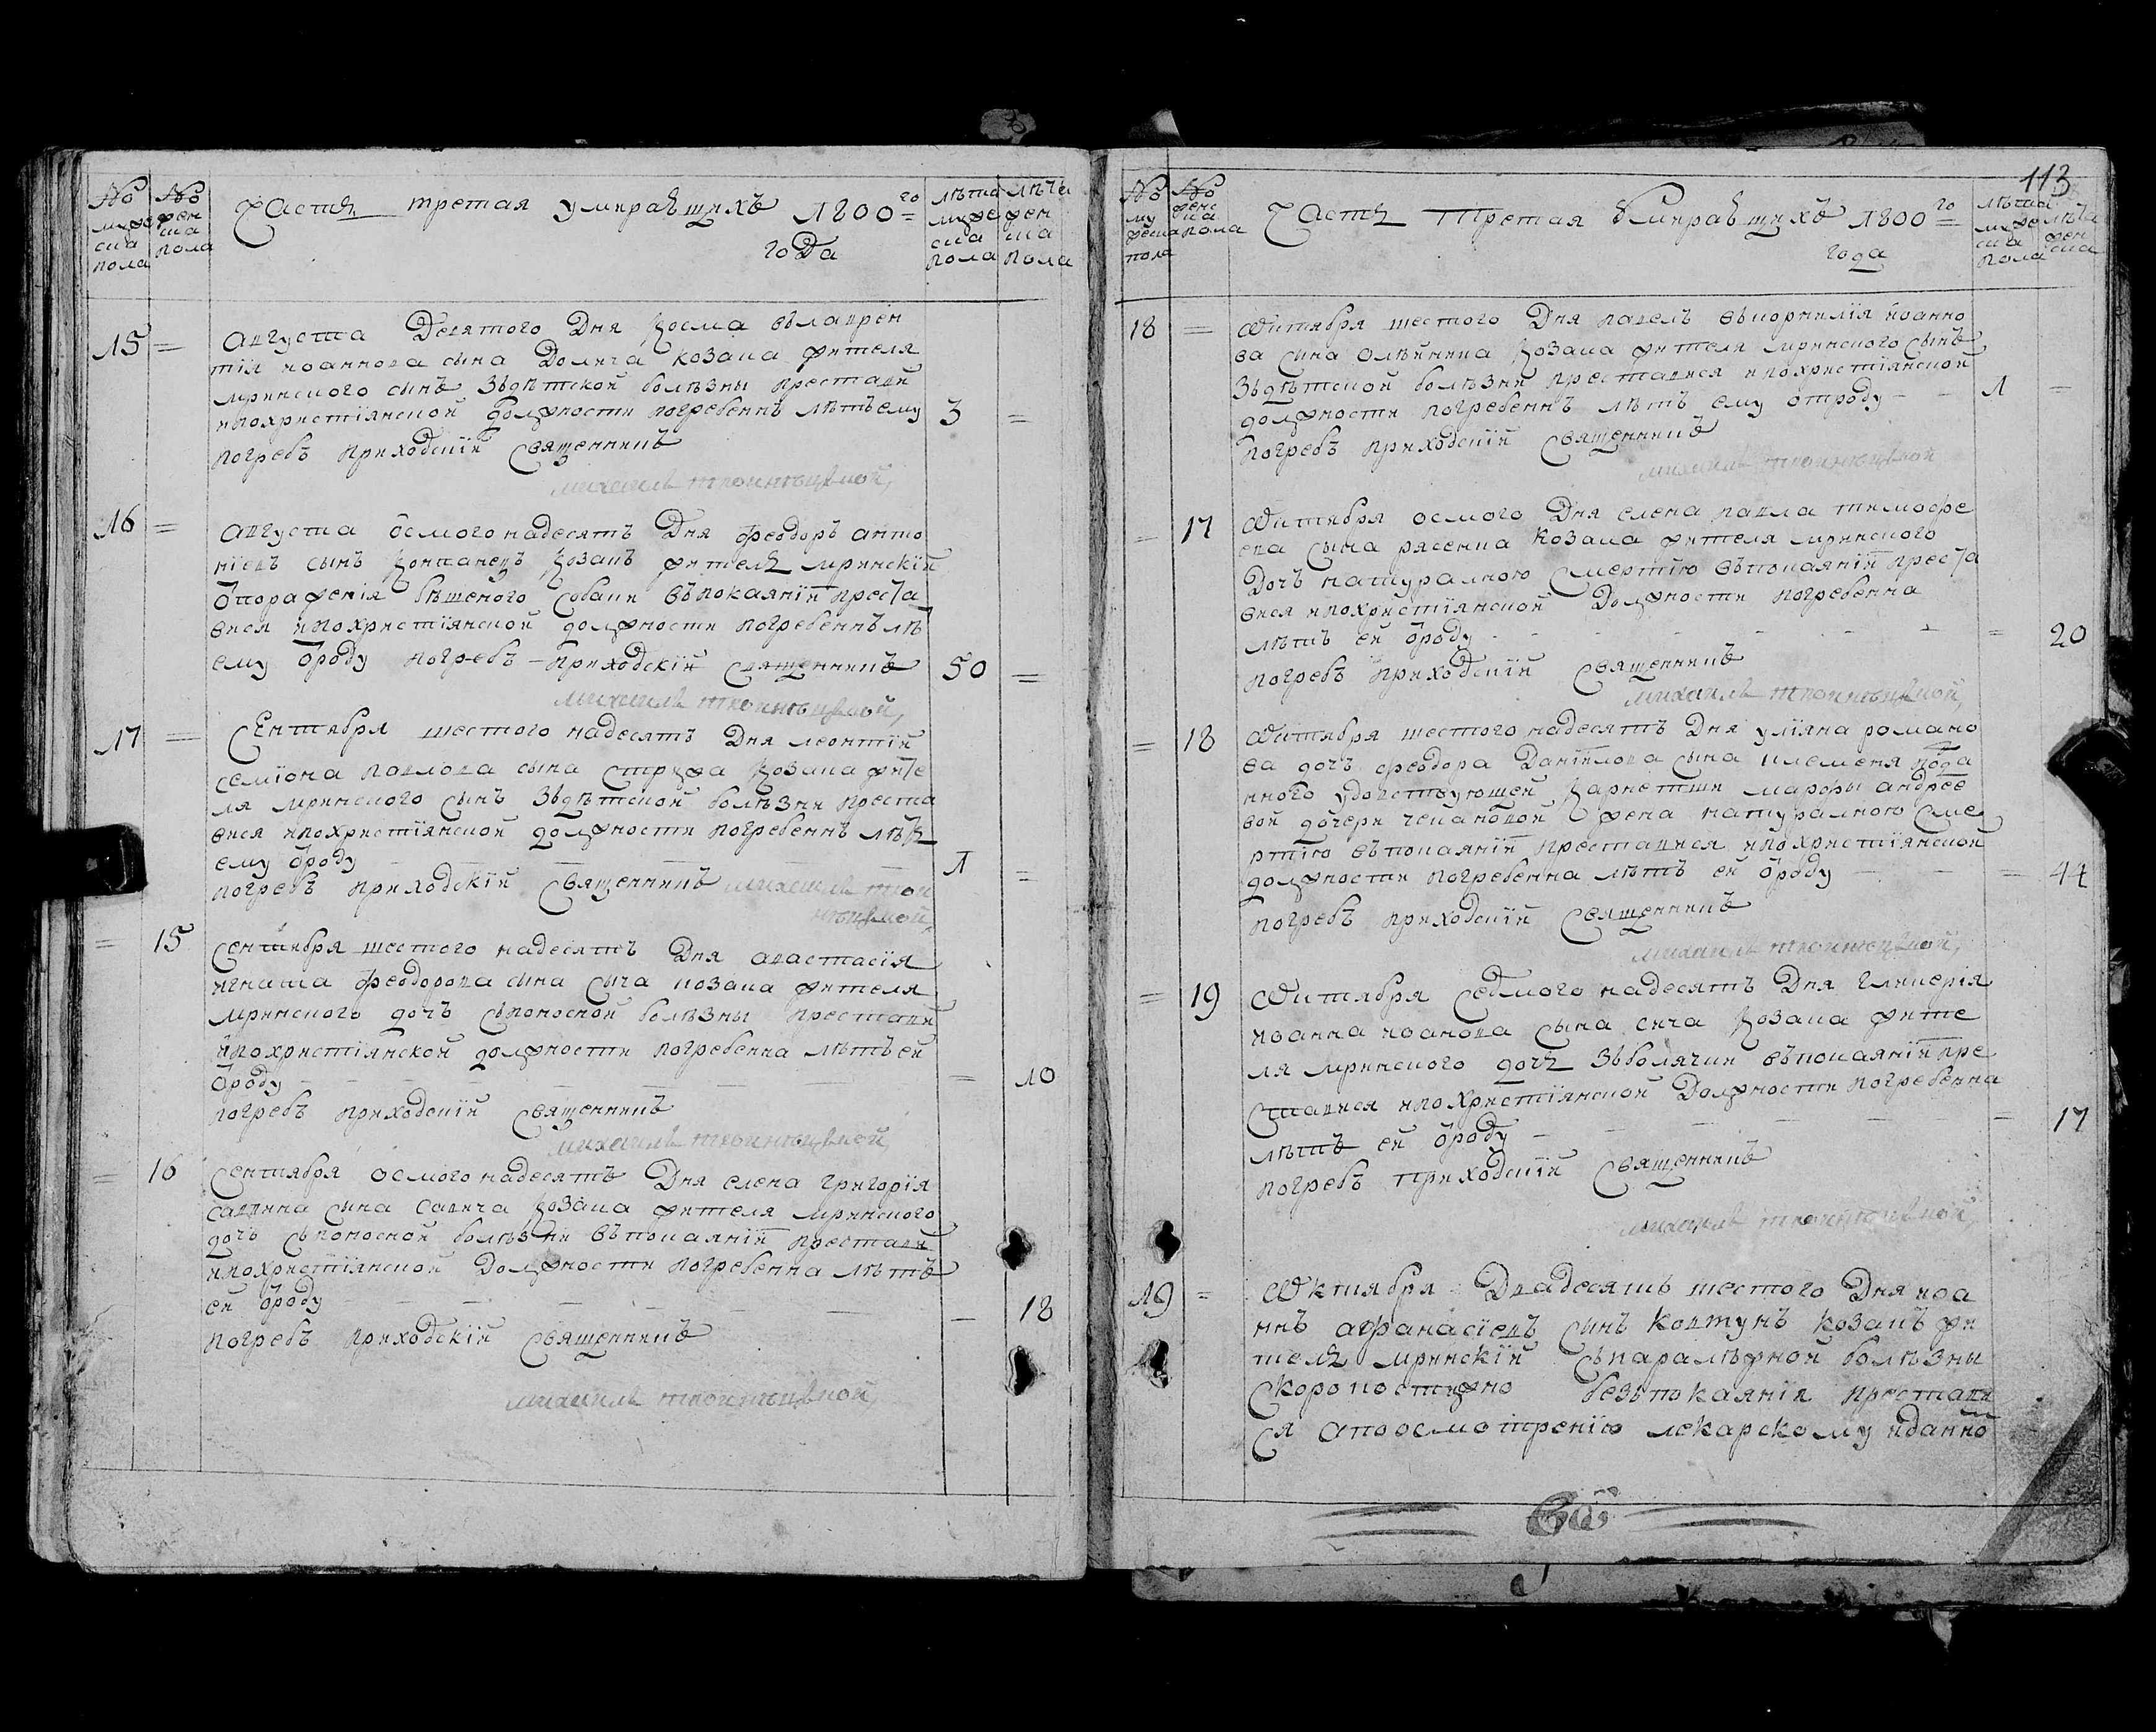 № мужеска пола
№ женска пола
Часть третая умиравшихъ 1800 го
года
лѣта мужеска пола
лѣта женска пола
15 =
августа Девятого Дня козма ѿлаврен
тїя иоаннова сына Долича козака жителя
мринского сынъ зъдѣтской болѣзны престави
ипохристїянской должности погребеннъ лѣтъ ему 3 =
погребъ приходскїй священникъ
михаилъ
16 =
августа осмогонадесятъ Дня феодоръ анто
нїевъ сынъ компанецъ козакъ житель мринскїй
ѿпораженїя бѣшеного собаки въпокаянїи преста
вися ипохристїянской должности погребеннъ лѣ
ему ѿроду погребъ - приходскїй священникъ 50 =
михаилъ
17 =
Сентября шестого надесятъ Дня леонтїй
семїона павлова сына струка козака жите
ля мринского сынъ зъдѣтской болѣзни преста
вися ипохристїянской должности погребеннъ лѣтъ
ему ѿроду 1 =
погребъ приходскїй священникъ михаилъ
= 15
сентября шестого надесятъ Дня анастасїя
игната феодорова сына сыча козака жителя
мринского дочъ съпоносной болѣзны престави
ипохристїянской должности погребенна лѣтъ ей
ѿроду = 10
погребъ приходскїй священникъ
михаилъ
= 16
сентября осмогонадесятъ Дня елена григорїя
саввина сына савича козака жителя мринского
дочъ съпоносной болѣзни въпокаянїи престави
ипохристїянской Должности погребенна лѣтъ
ей ѿроду – 18
погребъ приходскїй священникъ
михаилъ
113
№ мужеска пола
№ женска пола
Часть Третая умиравшихъ 1800 го
года
лѣта мужеска пола
лѣта женска
18 =
Ѡктября шестого Дня павелъ ѿкорнилїя иоанно
ва сына олѣйника козака жителя мринского сынъ
зъдѣтской болѣзни преставися ипохристїянской
должности погребеннъ лѣтъ ему отроду – – 1 =
погребъ приходскїй священникъ
михаилъ
= 17
Ѡктября осмого Дня елена павла тимофе
ева сына рясенка козака жителя мринского
Дочъ натуралною смертїю въпокаянїи преста
вися ипохристїянской Должности погребенна
лѣтъ ей ѿроду = 20
погребъ приходскїй священникъ
михаилъ
= 18
Ѡктября шестого надесятъ Дня улїяна романо
ва дочъ феодора Данїилова сына племеня пода
нного удовствующей марфы андрее
вой дочери жена натуралною сме
ртїю въпокаянїи преставися ипохристїянской
должности погребенна лѣтъ ей ѿроду – – = 44
погребъ приходскїй священникъ
михаилъ
= 19
Ѡктября седмого надесятъ Дня гликерїя
иоанна иоанова сына сича козака жите
ля мринского дочъ зъболячки въпокаянїи пре
ставися ипохристїянской Должности погребенна
лѣтъ ей ѿроду – 17
погребъ приходскїй священникъ
михаилъ
19 =
Ѡктября Двадесять шестого Дня иоа
ннъ афанасїевъ сынъ ковтунъ козакъ жи
тель мринскїй съпаралѣжной болѣзны
скоропостижно безъпокаянїя престави
ся апоосмотренїю лекарскому иданно